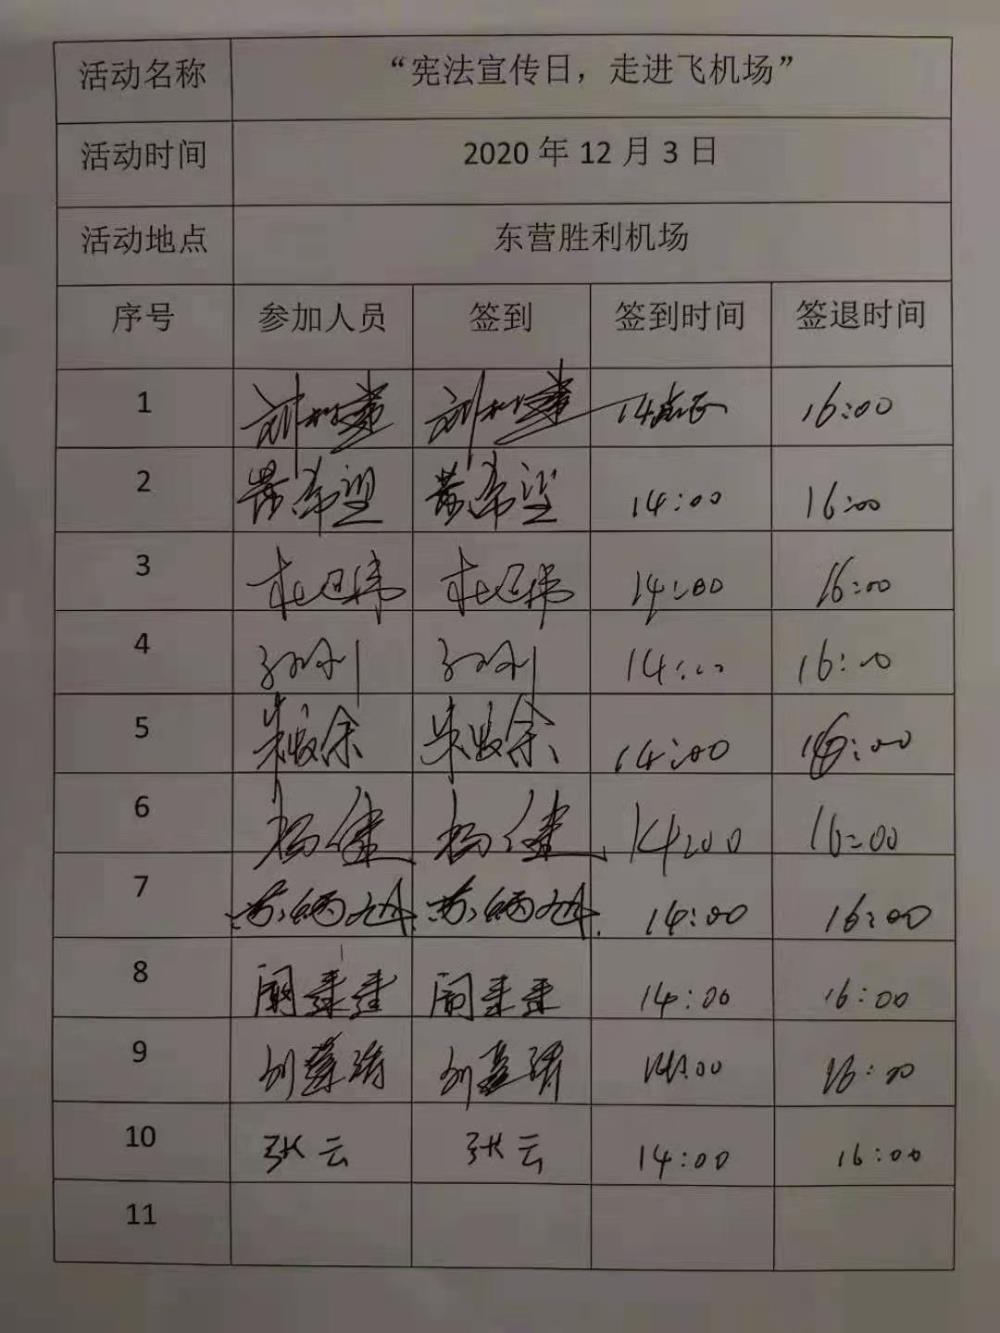 活动名称 “宪法宣传日，走进飞机场”
活动时间 2020 年 12 月 3 日
活动地点 东营胜利机场
序号 参加人员 签到 签到时间 签退时间
1 14 16:00
2 希望 希望 14:00 16:00
3 杜 杜 14:00 16:00
4 孙刚 孙刚 14:00 16:00
5 朱 余 朱 余 14:00 16:00
6 杨健 杨健 14:00 16:00
7 苏 苏 14:00 16:00
8 14:00 16:00
9 刘 刘 14:00 16:00
10 张云 张云 14:00 16:00
11